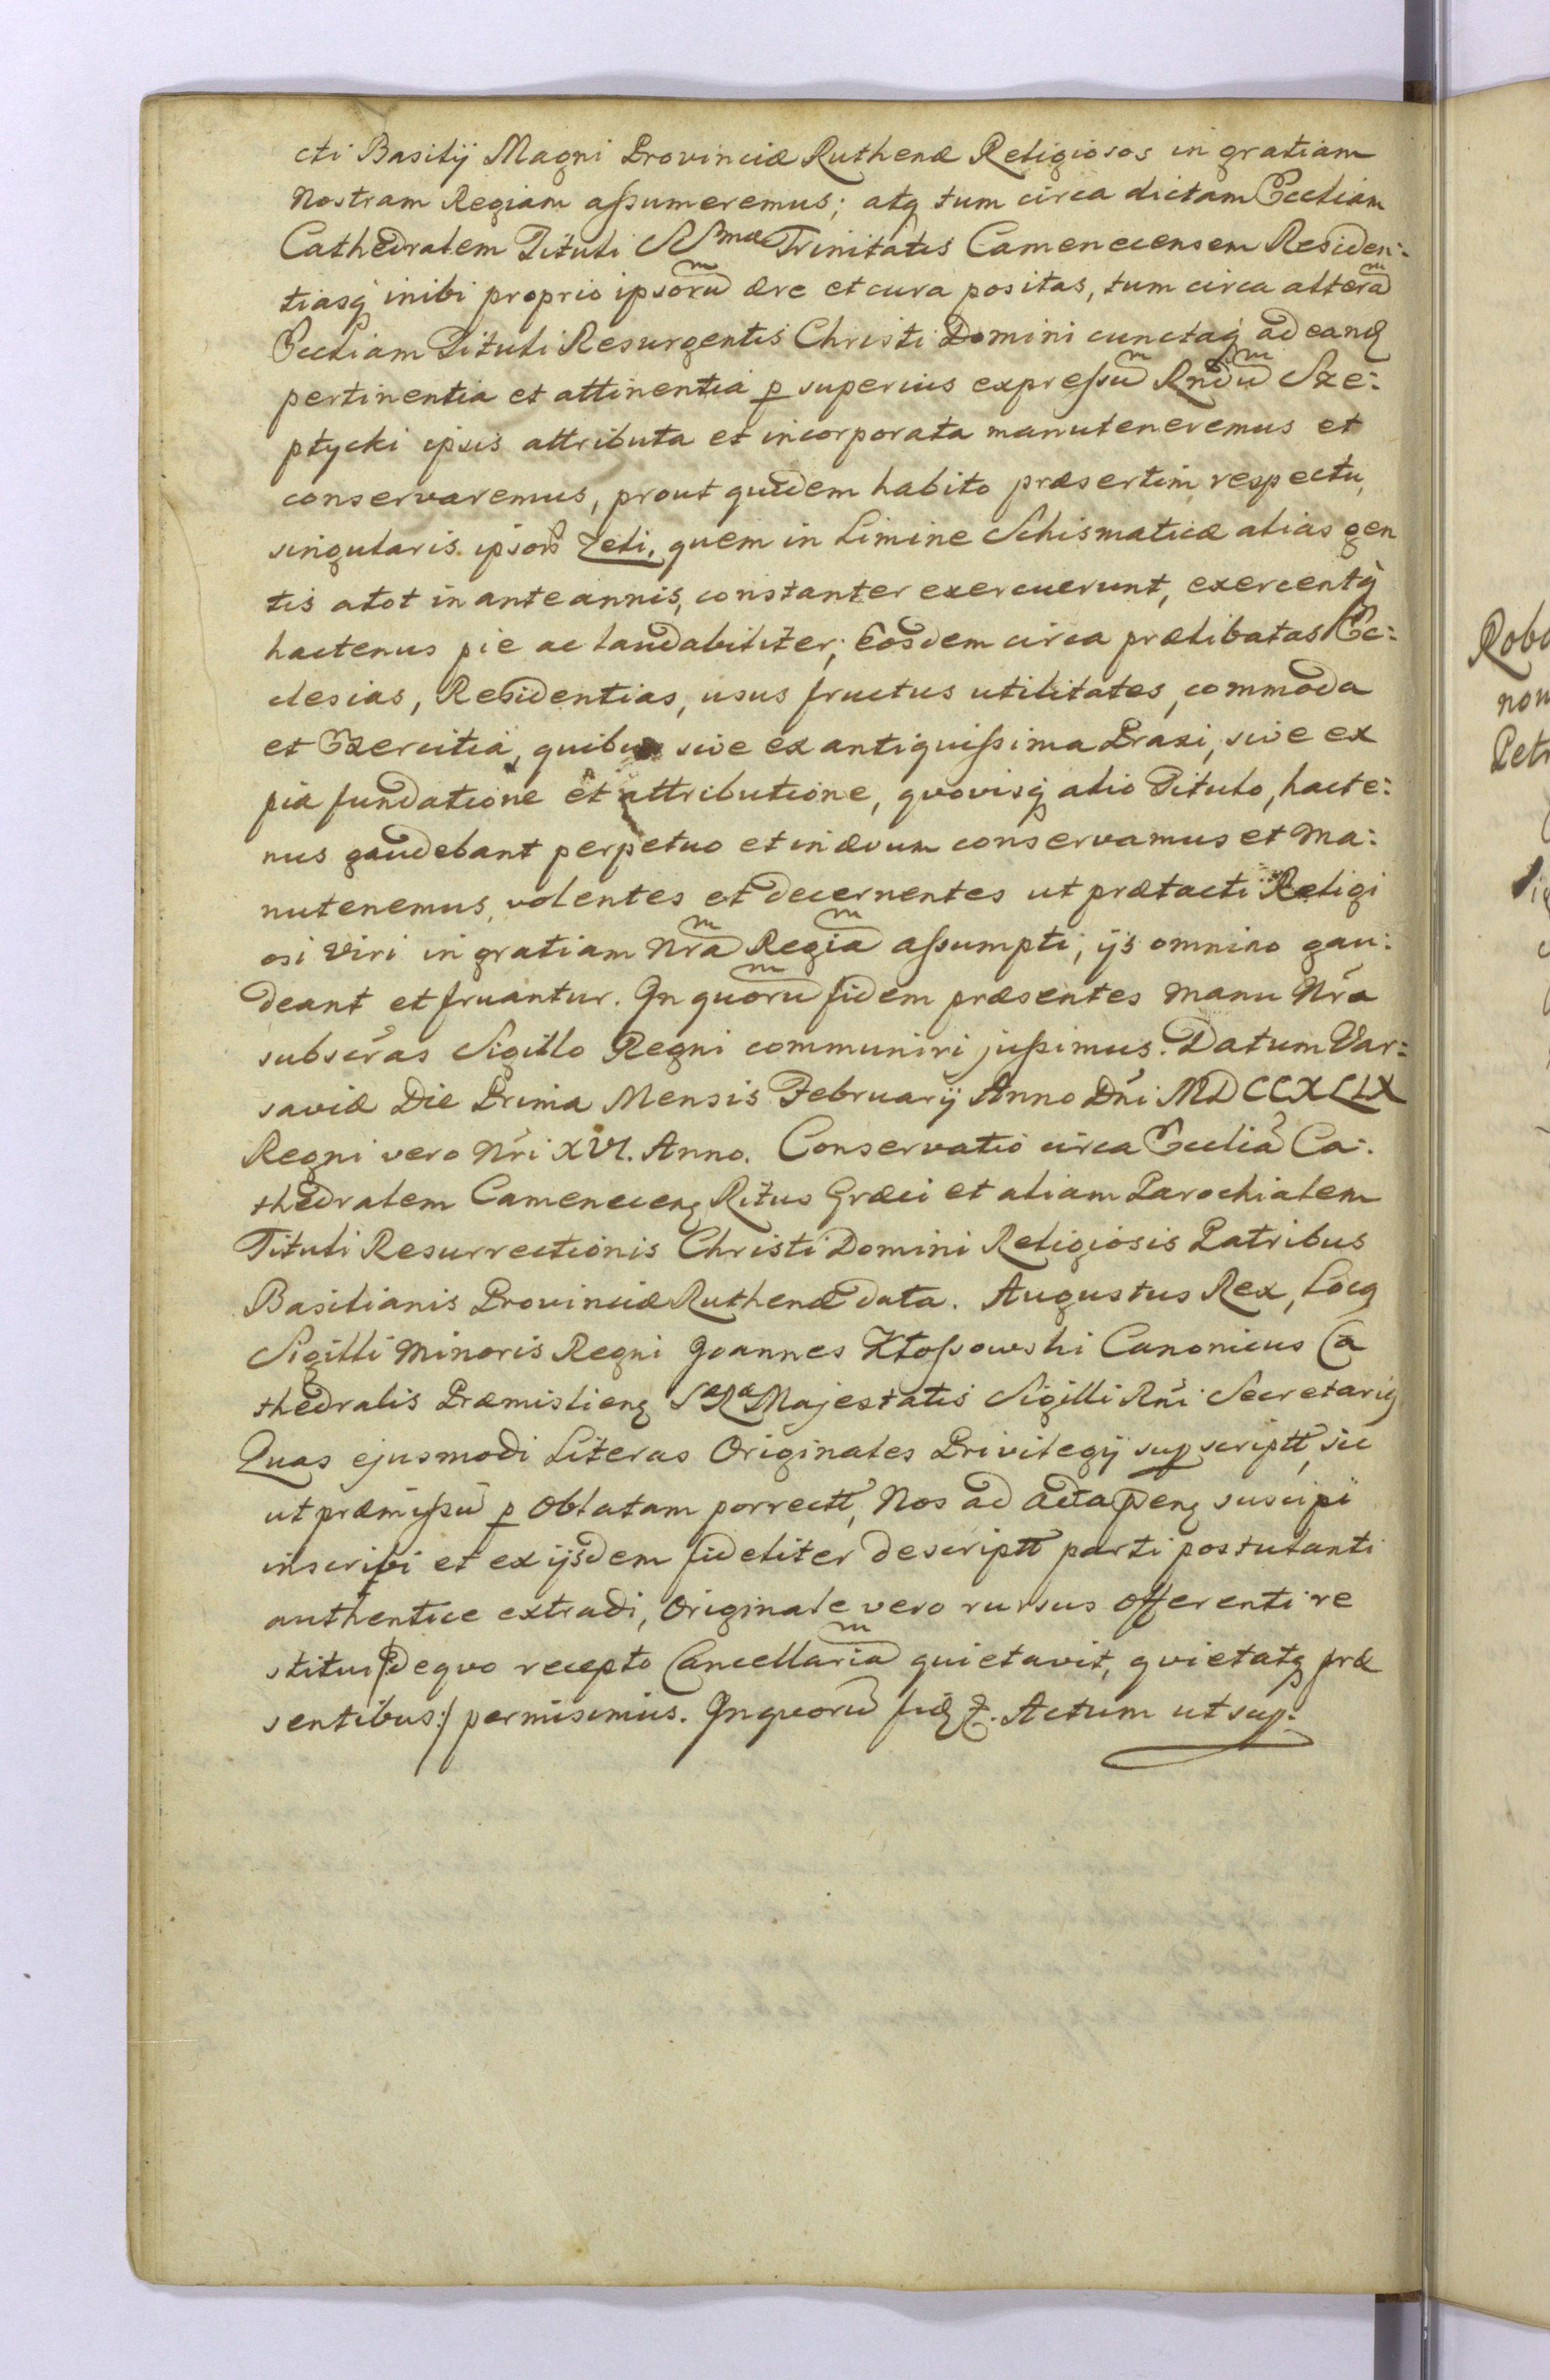 cti Basilij Magni Provinciæ Ruthenæ Religiosos in gratiam
Nostram Regiam assumeremus; atq tum circa dictam Eccliam
Cathedralem Tituli SSmæ Trinitatis Camenecensem Residen:
tiasq inibi proprio ipsorum ære et cura positas, tum circa alteram
Eccliam Tituli Resurgentis Christi Domini cunctaq ad eanq
pertinentia et attinentia p superius expressum Rndum Sze:
ptycki ipsis attributa et incorporata manuteneremus et
conservaremus, prout quidem habito præsertim respectu,
singularis ipsor Zeli, quem in Limine Schismaticæ alias gen
tis atot in ante annis, constanter exercuerunt, exercentq
hactenus pie ac laudabiliter; Eosdem circa prælibatas Ec:
clesias, Residentias, usus fructus utilitates, commoda
et Exercitia, quibus sive ex antiquissima Praxi, sive ex
pia fundatione et attributione, qvovisq alio Titulo, hacte:
nus gaudebant perpetuo et in ævum conservamus et Ma:
nutenemus, volentes et decernentes ut prætacti Religi
osi Viri in gratiam Nram Regiam assumpti, ijs omnino gau:
deant et fruantur. In quorum fidem præsentes Manu Nra
subscras Sigillo Regni communiri jussimus. Datum Var:
saviæ Die Prima Mensis February Anno Dni MDCCXLIX
Regni vero Nri XVI. Anno. Conservatio circa Eccliã Ca:
thedralem Camenecenq Ritus Græci et aliam Parochialem
Tituli Resurrectionis Christi Domini Religiosis Patribus
Basilianis Provinciæ Ruthenæ data. Augustus Rex, Locq
Sigilli Minoris Regni Joannes Kłossowski Canonicus Ca
thedralis Præmislienq Sæ Ræ Majestatis Sigilli Rni Secretariq
Quas ejusmodi Literas Originales Privilegij supscriptt, sic
ut præmissũ p Oblatam porrectt, Nos ad Acta pñenq suscipi
inscribi et ex ijsdem fideliter descriptt parti postulanti
authentice extradi, Originale vero rursus Offerenti re
stitui /de qvo recepto Cancellariam quietavit, qvietatq præ
sentibus:/ permisimus. In quorũ fidq &. Actum ut sup: